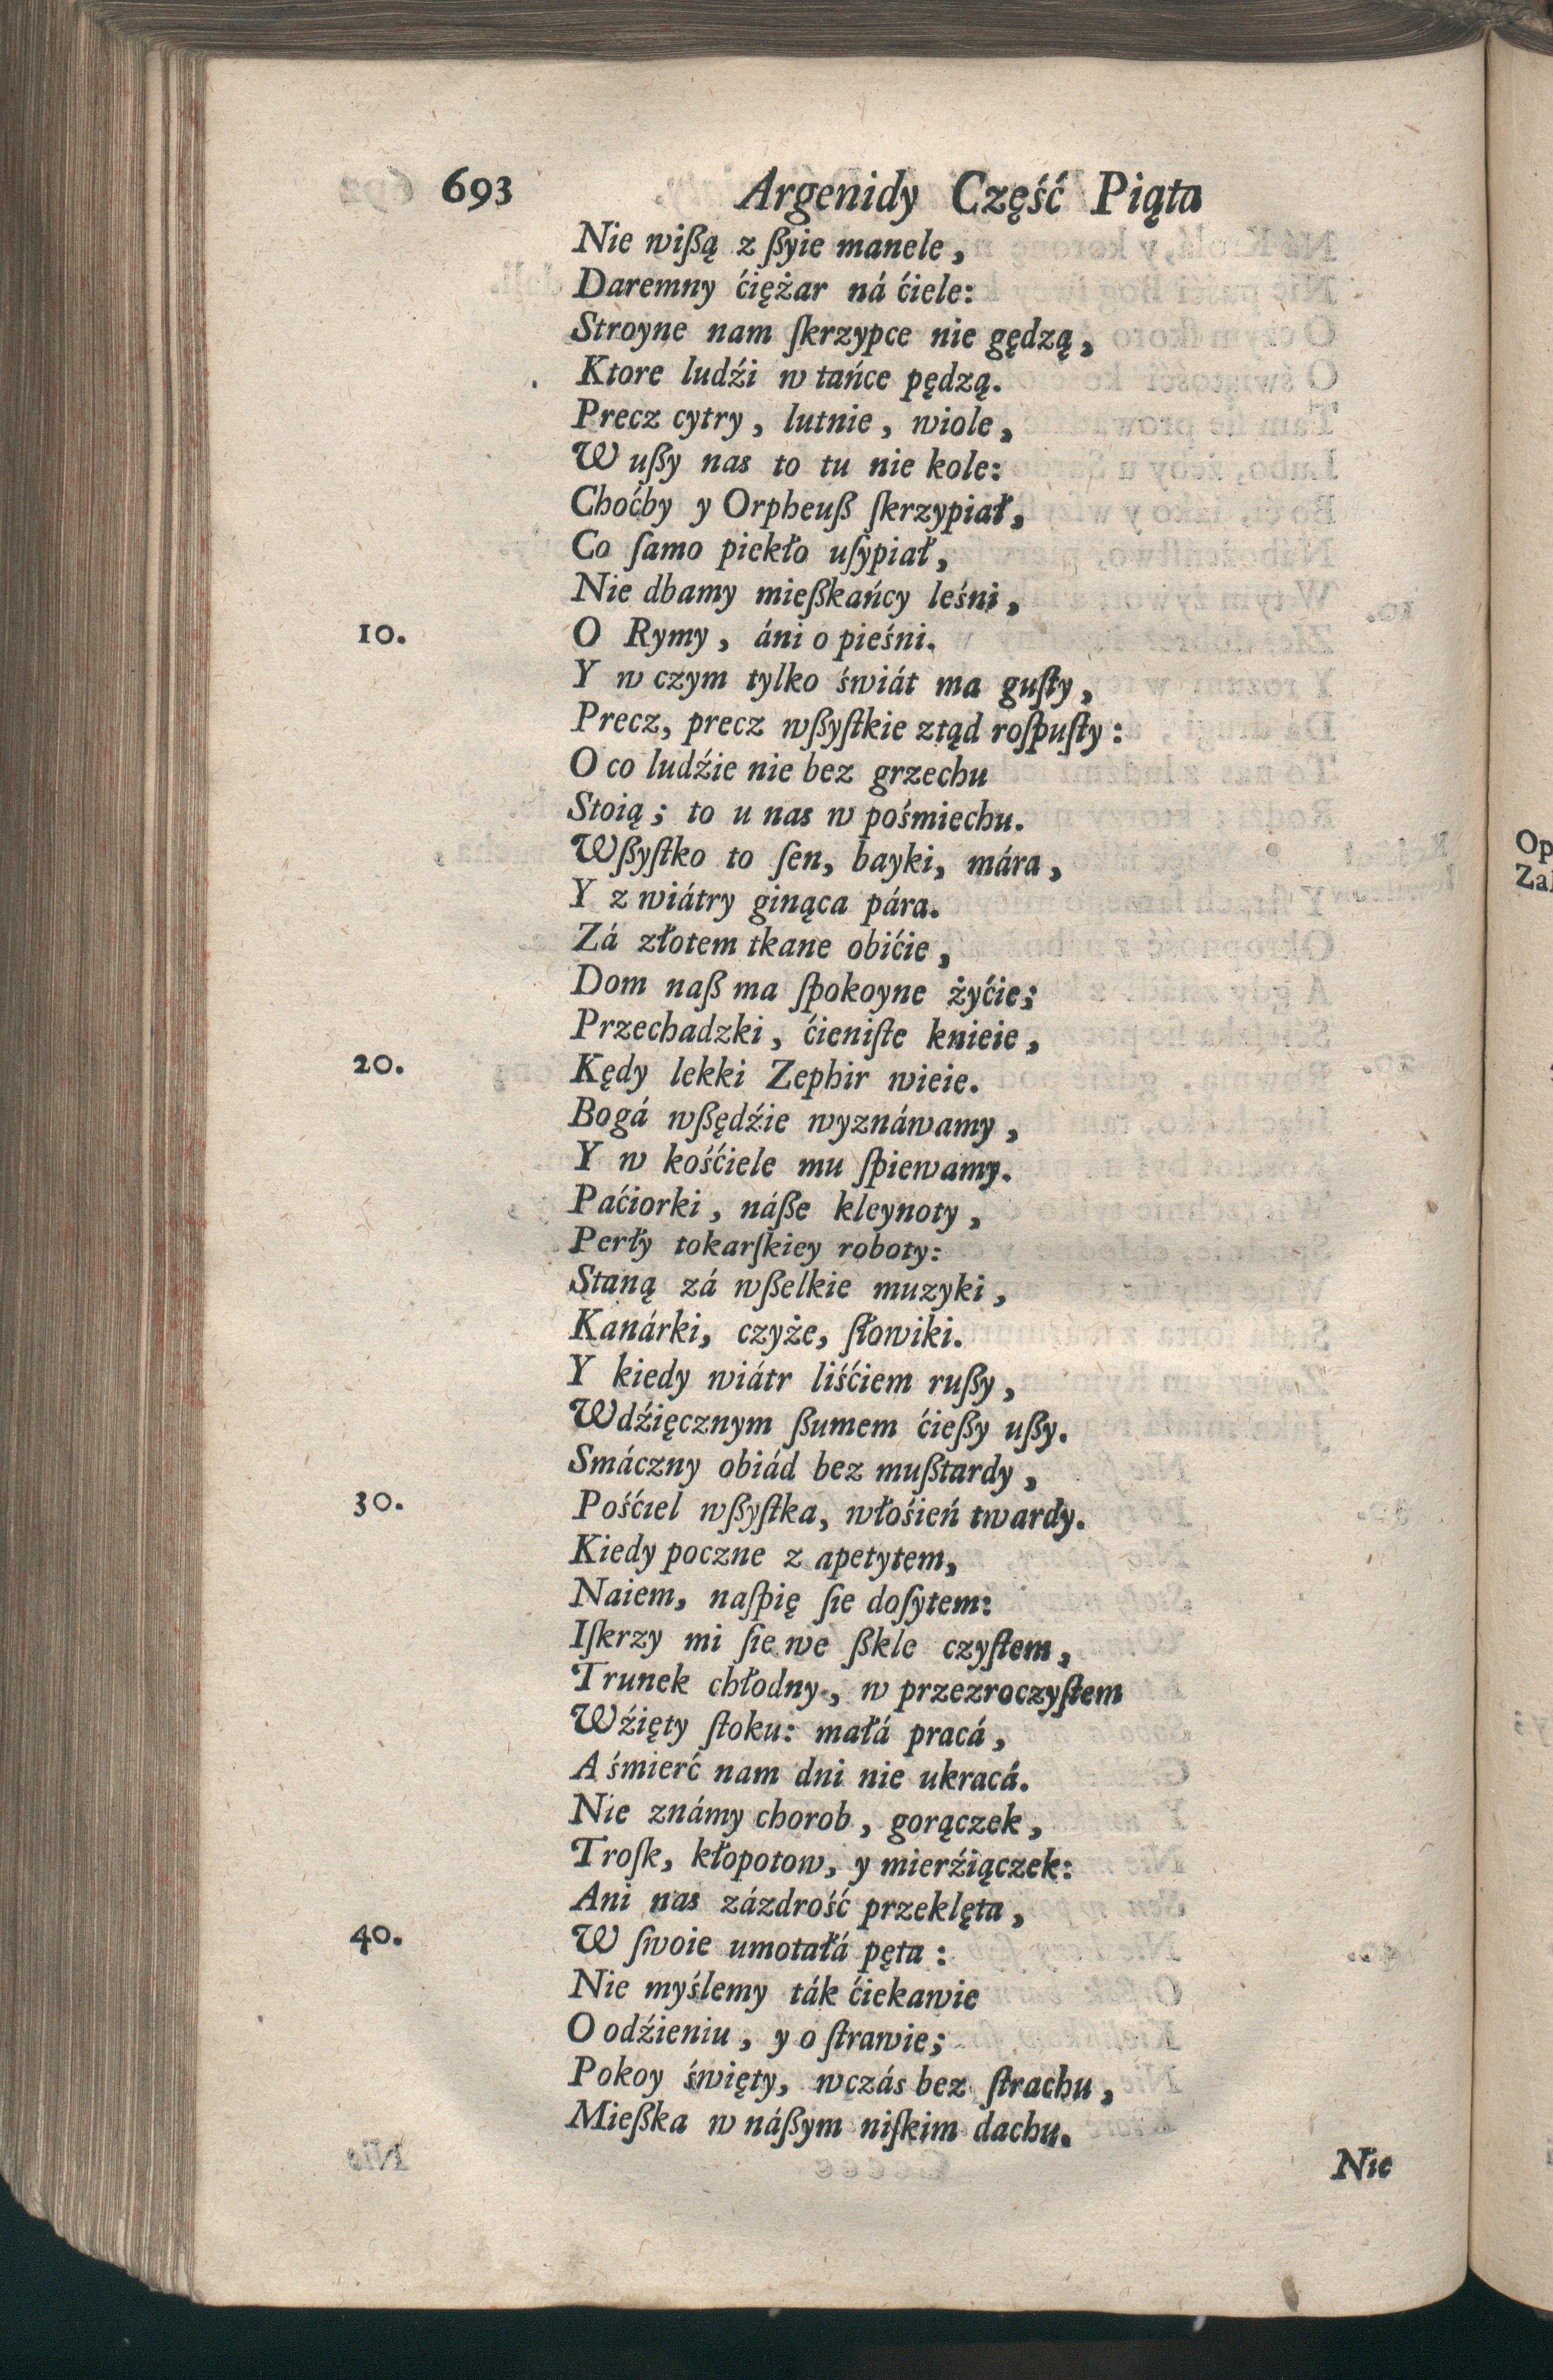 693 Argenidy Część Piąta
Nie wißą z ßyie manele,
Daremny ćiężar ná ćiele:
Stroyne nam ſkrzypce nie gędzą,
Ktore ludźi w tańce pędzą.
Precz cytry, lutnie, wiole,
W ußy nas to tu nie kole:
Choćby y Orpheuß ſkrzypiał,
Co ſamo piekło uſypiał,
Nie dbamy mießkańcy leśni,
10. O Rymy, áni o pieśni.
Y w czym tylko świát ma guſty,
Precz, precz wßyſtkie ztąd roſpuſty:
O co ludźie nie bez grzechu
Stoią; to u nas w pośmiechu.
Wßyſtko to ſen, bayki, mára,
Y z wiátry ginąca pára.
Zá złotem tkane obićie,
Dom naß ma ſpokoyne żyćie;
Przechadzki, ćieniſte knieie,
20. Kędy lekki Zephir wieie.
Bogá wßędźie wyznáwamy,
Y w kośćiele mu ſpiewamy.
Paćiorki, náße kleynoty,
Perły tokarſkiey roboty:
Staną zá wßelkie muzyki,
Kanárki, czyże, ſłowiki.
Y kiedy wiátr liśćiem rußy,
Wdźięcznym ßumem ćießy ußy.
Smáczny obiád bez mußtardy,
30. Pośćiel wßyſtka, włośień twardy.
Kiedy poczne z apetytem,
Naiem, naſpię ſie doſytem:
Iſkrzy mi ſie we ßkle czyſtem,
Trunek chłodny, w przezroczyſtem
Wźięty ſtoku: małá pracá,
A śmierć nam dni nie ukracá.
Nie známy chorob, gorączek,
Troſk, kłopotow, y mierźiączek:
Ani nas zázdrość przeklęta,
40. W ſwoie umotałá pęta:
Nie myślemy ták ćiekawie
O odźieniu, y o ſtrawie;
Pokoy święty, wczás bez ſtrachu,
Mießka w náßym niſkim dachu.
Nie
Op